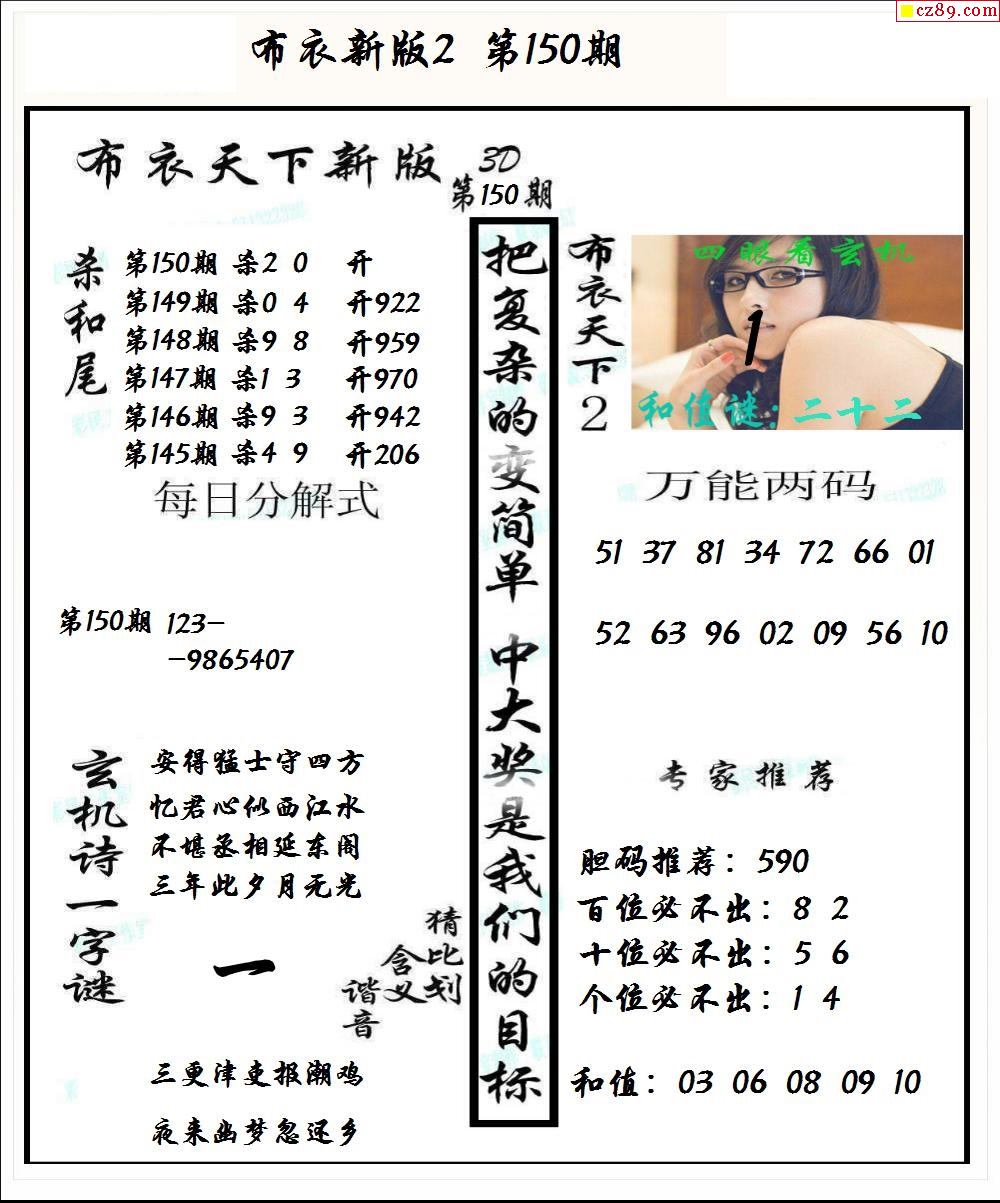 cz89.com
布衣新版2 第150期
布衣天下新版 3D
第150期
杀和尾
第150期 杀2 0 开
第149期 杀0 4 开922
第148期 杀9 8 开959
第147期 杀1 3 开970
第146期 杀9 3 开942
第145期 杀4 9 开206
每日分解式
第150期 123-
-9865407
玄机诗一字谜
安得猛士守四方
忆君心似西江水
不堪丞相延东阁
三年此夕月无光
一
猜比划
含义
谐音
三更津吏报潮鸡
夜来幽梦忽还乡
把复杂的变简单 中大奖是我们的目标
布衣天下2
四眼看玄机
1
和值谜:二十二
万能两码
51 37 81 34 72 66 01
52 63 96 02 09 56 10
专家推荐
胆码推荐：590
百位必不出：8 2
十位必不出：5 6
个位必不出：1 4
和值：03 06 08 09 10